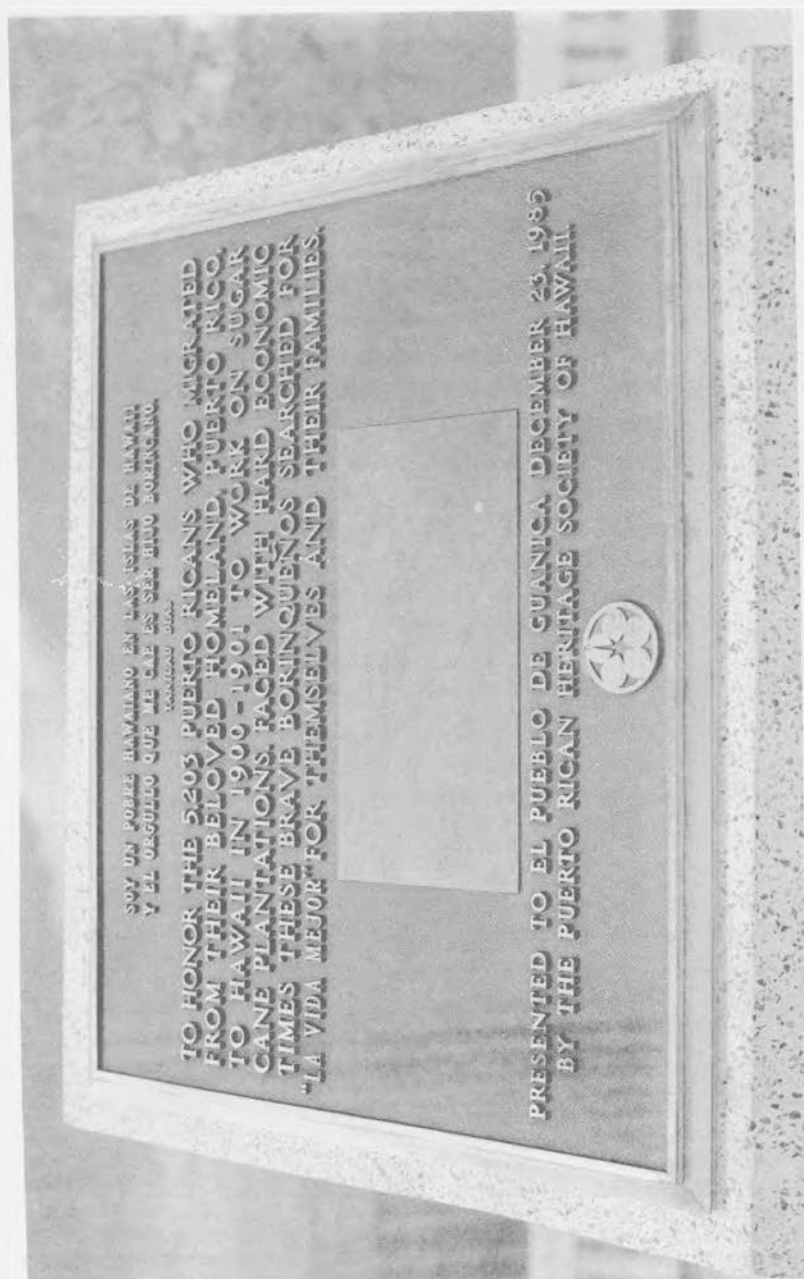 SOY UN POBRE HAWAIANO EN LAS ISLAS DE HAWAII
Y EL ORGULLO QUE ME CAE ES SER HIJO BORINCANO.
DIAZ
TO HONOR THE 5,203 PUERTO RICANS WHO MIGRATED
FROM THEIR BELOVED HOMELAND, PUERTO RICO,
TO HAWAII IN 1900-1901 TO WORK ON SUGAR
CANE PLANTATIONS. FACED WITH HARD ECONOMIC
TIMES THESE BRAVE BORINQUEÑOS SEARCHED FOR
"LA VIDA MEJOR" FOR THEMSELVES AND THEIR FAMILIES.
PRESENTED TO EL PUEBLO DE GUANICA DECEMBER 23, 1985
BY THE PUERTO RICAN HERITAGE SOCIETY OF HAWAII.